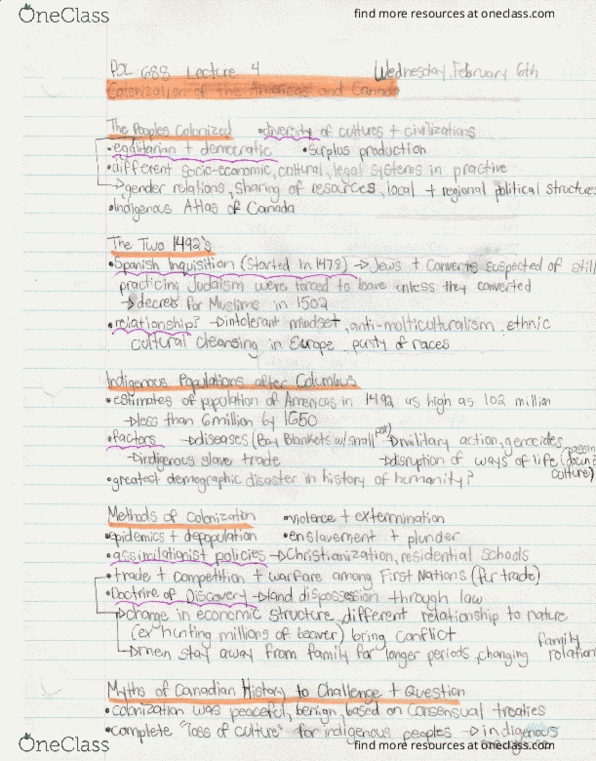 OneClass
find more resources at oneclass.com
POL 688 Lecture 4 Wednesday, February 6th
Colonization of the Americas and Canada
The Peoples Colonized •diversity of cultures + civilizations
•egalitarian + democratic •surplus production
•different socio-economic, cultural, legal systems in practive
→gender relations, sharing of resources, local + regional political structures
•Indigenous Atlas of Canada
The Two 1492's
•Spanish Inquisition (Started in 1478) →Jews + Converts suspected of still
practicing Judaism were forced to leave unless they converted
→decree for Muslims in 1502
•relationship? →intolerant mindset, anti-multiculturalism, ethnic
cultural cleansing in Europe, purity of races
Indigenous Populations after Columbus
•estimates of population of Americas in 1492 as high as 102 million
→less than 6million by 1650
•factors →diseases (Bay Blankets w/small pox) →military action, genocides
→indigenous slave trade →disruption of ways of life (
culture)
•greatest demographic disaster in history of humanity?
Methods of Colonization •violence + extermination
•epidemics + depopulation •enslavement + plunder
•assimilationist policies →Christianization, residential schools
•trade + competition + warfare among First Nations (fur trade)
•Doctrine of Discovery →land dispossession through law
→change in economic structure, different relationship to nature
(ex hunting millions of beaver) bring conflict
→men stay away from family for longer periods, changing family relation
Myths of Canadian History to Challenge + Question
•colonization was peaceful, benign based on consensual treaties
•complete "loss of culture" for indigenous peoples → indigenous
OneClass
find more resources at oneclass.com